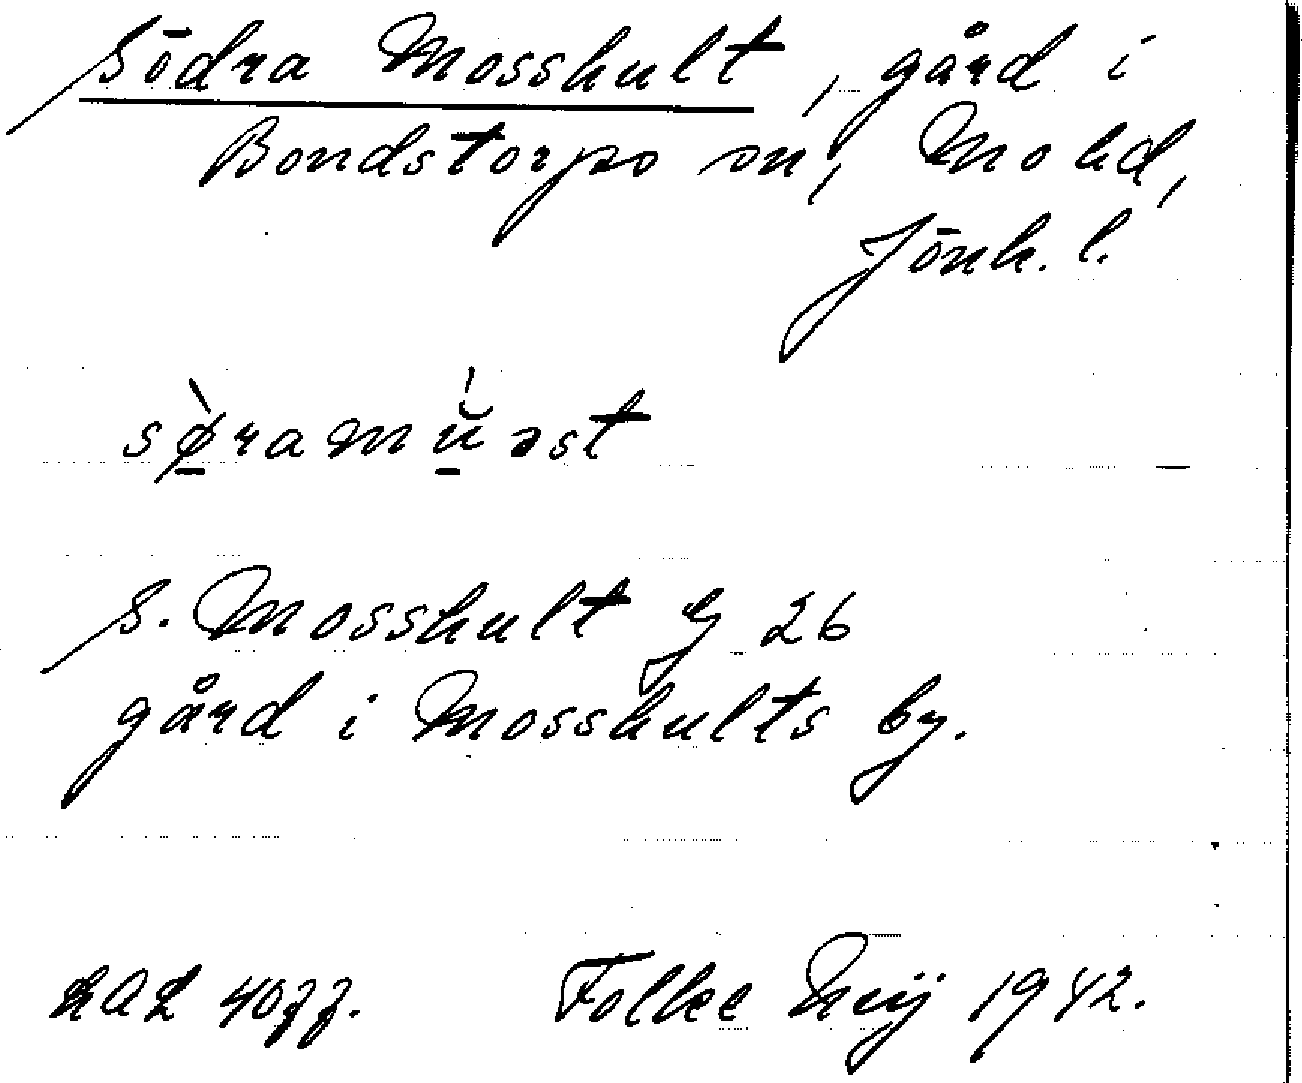 Södra Mosshult, gård i
Bondstorps sn, Mo hd,
Jönk. l.
sø̀ramŭ́əst
S. Mosshult G 26
gård i Mosshults by.
Folke 1942.